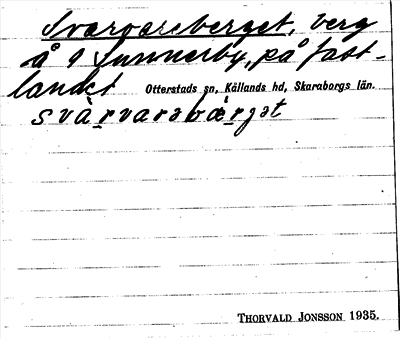 Svarvareberget, berg
å 9 Sunnerby, på fast-
landet Otterstads sn, Kållands hd, Skaraborgs län.
svàrvarəbǽrjət
THORVALD JONSSON 1935.